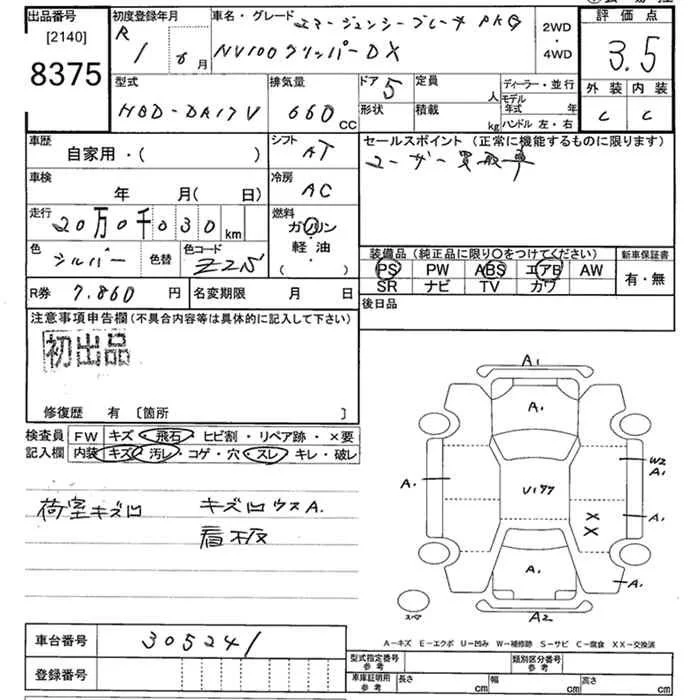 出品番号 初度登録年月 車名・グレード エマージェンシーブレーキ PKG 2WD 評価点
[2140] R 1 6月 NV100クリッパー DX ・ 3.5
8375 4WD
型式 排気量 ドア 5 定員 人 ディーラー・並行 外装 内装
HBD-DR17V 660 CC 形状 積載 kg モデル年式 年 C C
ハンドル 左・右
車歴 シフト AT セールスポイント (正常に機能するものに限ります)
自家用・( ) ユーザー買取車
車検 年 月(日) 冷房 AC
走行 20万0千030 km 燃料 ガソリン
軽油・
( )
色 シルバー 色替 色コード Z2 装備品 (純正品に限り○をつけてください) 新車保証書
PS PW ABS エアB AW 有・無
SR ナビ TV カワ
R券 7,860 円 名変期限 月 日 後日品
注意事項申告欄 (不具合内容等は具体的に記入して下さい)
初出品
修復歴 有 〔箇所 〕
検査員 FW キズ・飛石・ヒビ割・リペア跡・×要
記入欄 内装 キズ・汚レ・コゲ・穴・スレ・キレ・破レ
荷室キズ凹 キズ凹ウスA.
看板
A1
A1
W2
A1
A1 U177
A1
×
×
A1
A1
スペア
A2
A－キズ E－エクボ U－凹み W－補修跡 S－サビ C－腐食 XX－交換済
車台番号 305241 型式指定番号 参考 類別区分番号 参考
登録番号 車庫証明用 参考 長さ cm 幅 cm 高さ cm